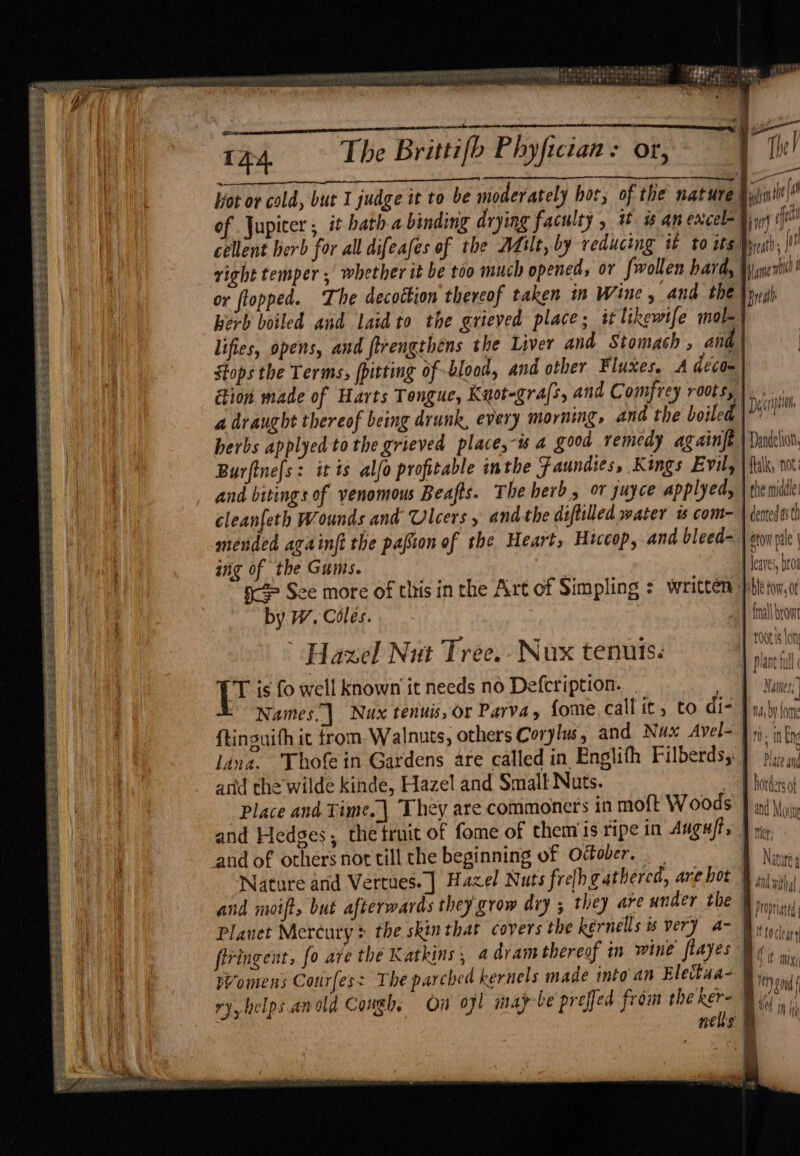 144 The Brittiſh Phyſician : or,
hot or cold, but I judge it to be moderately hot, of the nature
of Jupiter ; it hath a binding drying faculty , it is an excel-
cellent herb for all diſeaſes of the Milt, by reducing it to its
right temper ; whether it be too much opened, or ſwollen hard,
or ſtopped. The decoction thereof taken in Wine , and the
herb boiled and laid to the grieved place ; it likewiſe mol-
lifies, opens, and ſtrengthens the Liver and Stomach , and
Stops the Terms, ſpitting of blood, and other Fluxes. A deco-
ction made of Harts Tongue, Knot-graſs, and Comfrey roots,
a draught thereof being drunk every morning, and the boiled
herbs applyed to the grieved place, is a good remedy againſt
Burſtneſs : it is alſo profitable in the Jaundies, Kings Evil,
and bitings of venomous Beaſts. The herb , or juyce applyed,
cleanſeth Wounds and Ulcers , and the diſtilled water is com-
mended againſt the paſſion of the Heart, Hiccop, and bleed-
ing of the Gums.
☞ See more of this in the Art of Simpling : written
by W. Coles.
Hazel Nut Tree. Nux tenuis.
IT is ſo well known it needs no Deſcription.
Names.] Nux tenuis, or Parva, ſome call it, to di-
ſtinguiſh it from Walnuts, others Corylus, and Nux Avel-
lana. Thoſe in Gardens are called in Engliſh Filberds,
and the wilde kinde, Hazel and Small Nuts.
Place and Time.] They are commoners in moſt Woods
and Hedges, the fruit of ſome of them is ripe in Auguſt,
and of others not till the beginning of October.
Nature and Vertues.] Hazel Nuts freſh gathered, are hot
and moiſt, but afterwards they grow dry ; they are under the
Planet Mercury : the skin that covers the kernells is very a-
ſtringent, ſo are the Katkins , a dram thereof in wine ſtayes
Womens Courſes : The parched kernels made into an Electua-
ry, helps an old Cough. On oyl may be preſſed from the ker-
nells